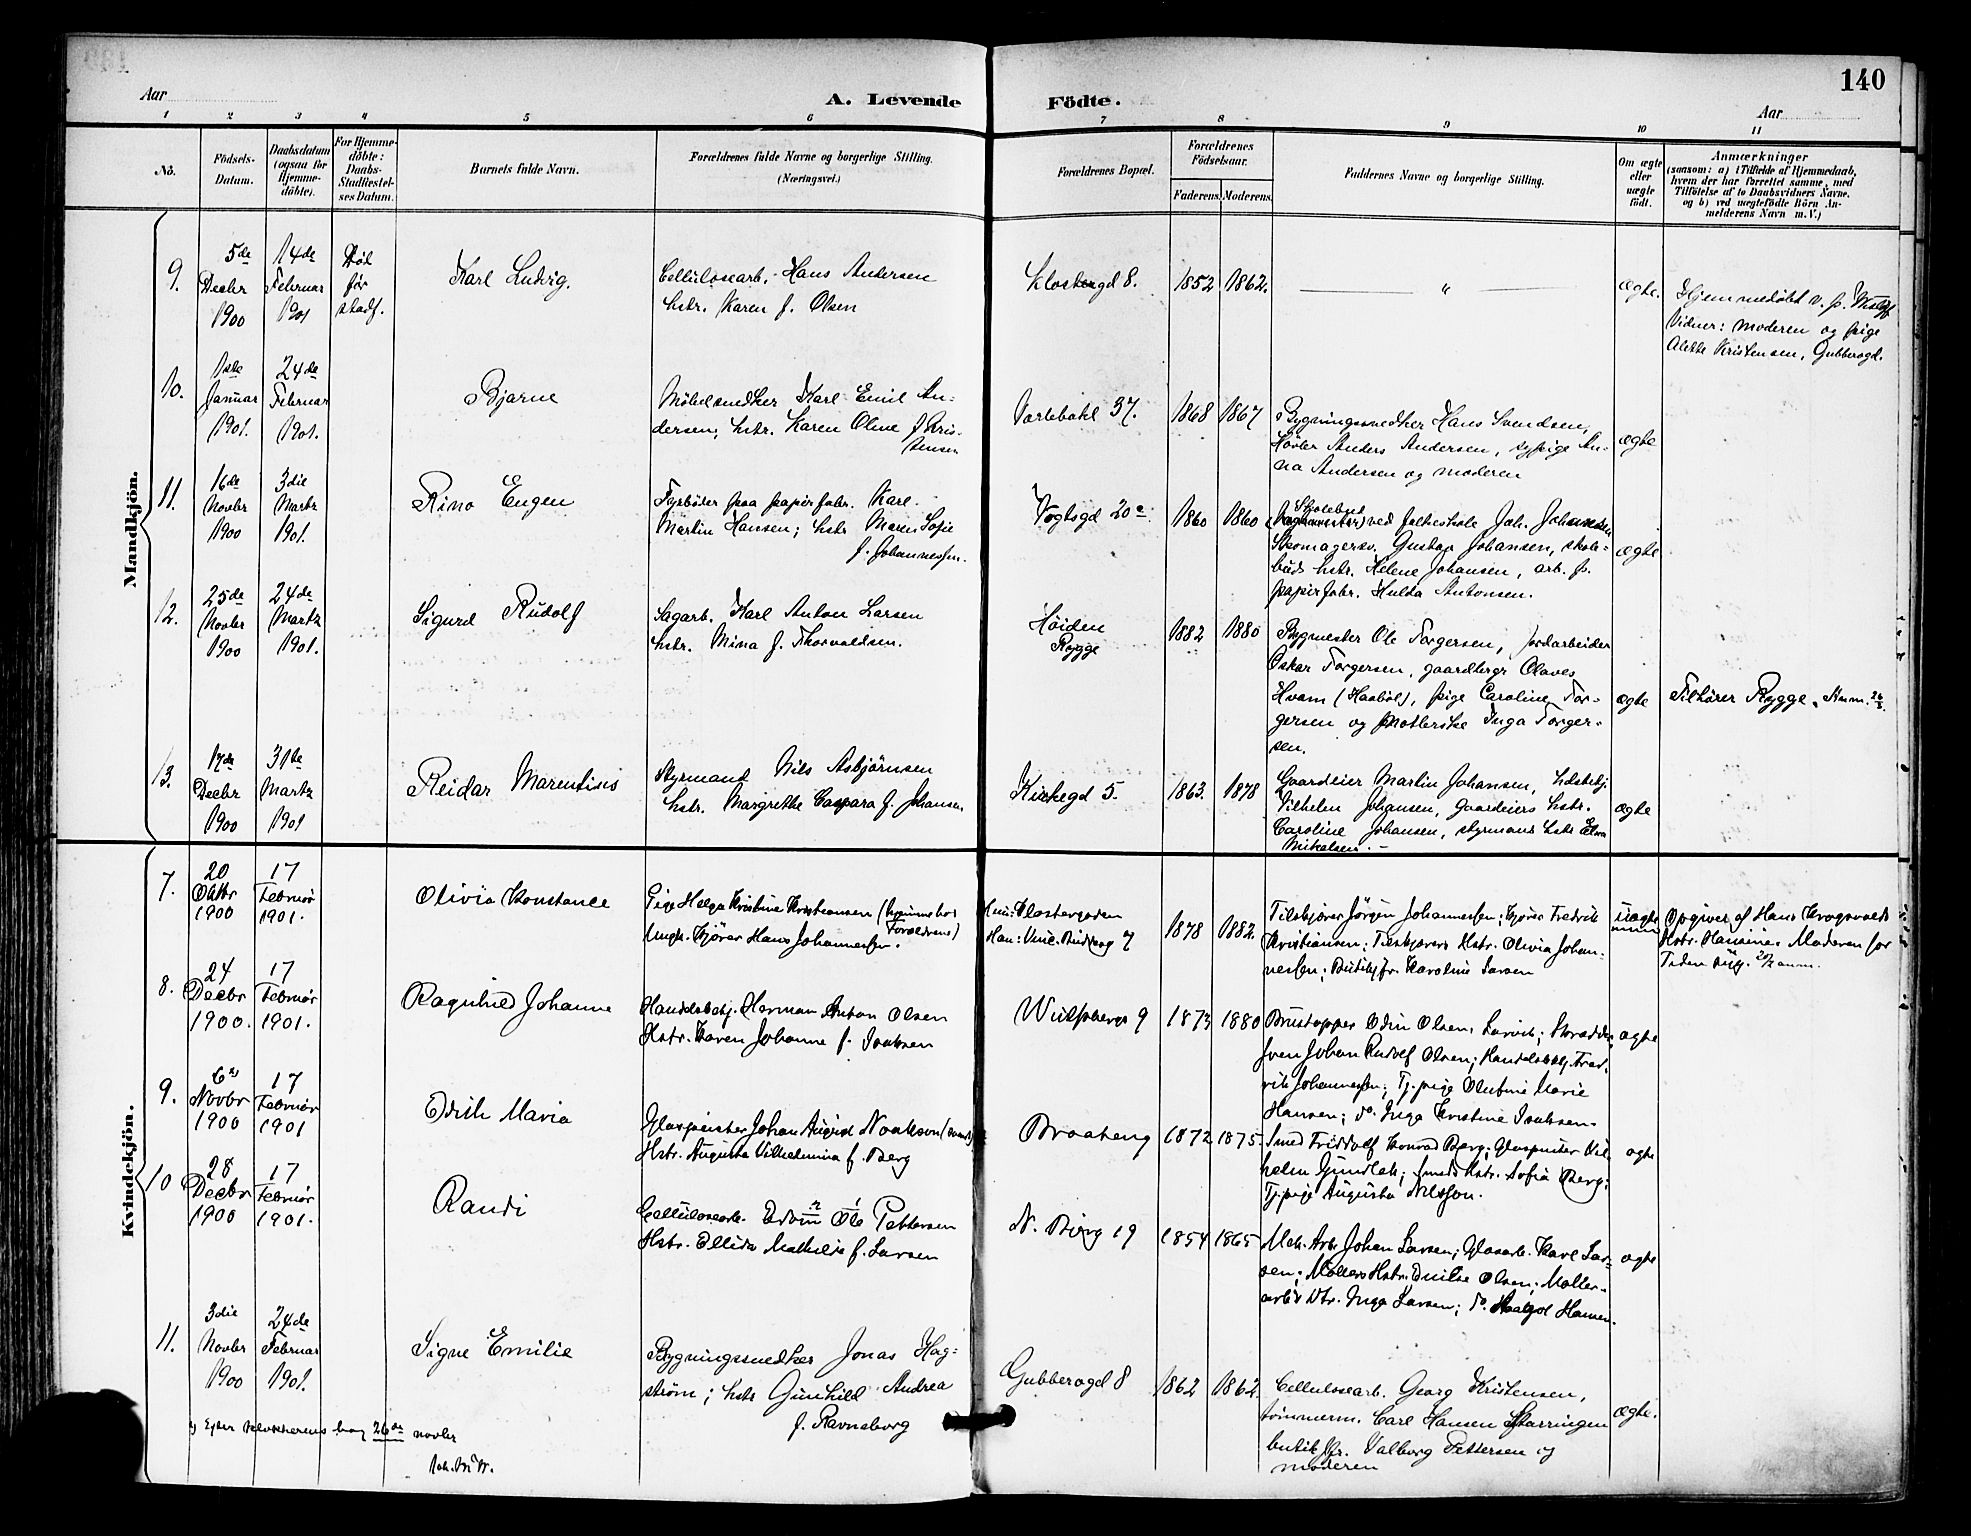 140
Aar
A. Levende Födte.
Aar
1 2 3 4 5 6 7 8 9 10 11
No.
Födsels-
Datum.
Daabsdatum
(ogsaa for
Hjemme-
döbte).
For Hjemme-
döbte:
Daabs-
Stadfæstel-
ses Datum.
Barnets fulde Navn.
Forældrenes fulde Navne og borgerlige Stilling.
(Næringsvei.)
Forældrenes Bopæl.
Forældrenes
Födselsaar.
Faderens. Moderens.
Faddernes Navne og borgerlige Stilling.
Om ægte
eller
uægte
födt.
Anmærkninger
(saasom: a) i Tilfælde af Hjemmedaab,
hvem der har forrettet samme, med
Tilföielse af to Daabsvidners Navne.
og b) ved uægtefödte Börn An-
melderens Navn m. V.)
Mandkjön.
9.
5de
Decbr
1900
14de
Februar
1901
Död
før
stadf.
Karl Ludvig.
Cellulosearb. Hans Andersen
hstr. Karen f. Olsen
Klostergd 8.
1852 1862.
— " —
ægte.
Hjemmedøbt v. p.
Vidner: moderen og pige
Alette Kristensen, Gubberogd.
10.
1ste
Januar
1901.
24de
Februar
1901.
Bjarne
Möbelsnedker Karl Emil An-
dersen, hstr. Karen Oline f. Kris-
tensen
Varlebakl 37.
1868 1867
Bygningssnedker Hans Svendsen,
Høvler Anders Andersen, sypige An-
na Andersen og moderen
ægte
11.
16de
Novbr
1900
3die
Martz
1901.
Rino Eugen
Fyrbøder paa papirfabr. Karl
Martin Hansen; hstr Maren Sofie
f. Johannessen.
Vogtsgd 20a
1860 1860
Skolebud
ved folkeskole Joh. Johansen
Skomagersv. Gustav Johansen, skole-
buds hstr. Helene Johansen, arb. p.
papirfabr. Hulda Antonsen.
ægte
12.
25de
Novbr
1900
24de
Martz
1901.
Sigurd Rudolf
Sagarb. Karl Anton Larsen
hstr. Mina f. Thorvaldsen.
Høiden
Rygge
1882 1880
Bygmester Ole Torgersen, jordarbeider
Oskar Torgersen, gaardbrgr Olaves
Hvam (Haabøl), pige Caroline Tor-
gersen og Inga Torger-
sen.
ægte
Tilhører Rygge.
13.
17de
Decbr
1900
31te
Martz
1901
Reidar Marentius
Styrmand Nils Asbjørnsen
hstr. Margrethe Caspara f. Johansen
Kirkegd 5.
1863. 1878
Gaardeier Martin Johansen,
Vilhelm Johansen, gaardeiers hstr.
Caroline Johansen, styrmans hstr
Mikalsen.
ægte
Kvindekjön.
7.
20
Oktbr
1900
17
Februar
1901.
Olivia Konstance
Pige Helga Kristine Kristiansen (hjemme hos
Forældrene)
Ungk. Kjører Hans Johannessen.
Hun: Klostergaden
Han: 7
1878 1882.
Tilskjører Jørgen Johannessen; Kjører Fredrik
Kristiansen; Tilskjørers Hstr. Olivia Johan-
nessen; Butikjfr. Karoline Larsen
uægte
Opgiver af Hans Krogsvolds
Hstr. Hansine Moderen for
Tiden syg.
8.
24
Decbr
1900.
17
Februar
1901.
Ragnhild Johanne
Handelsbetj. Herman Anton Olsen
Hstr. Karen Johanne f. Isaksen
Wulfsbergs 9
1873 1880
Brustapper Odin Olsen, Larvik; Skrædder
Sven Johan Rudolf Olsen; Handelsbetj. Fred-
rik Johannessen; Tj.pige Olufine Marie
Hansen; do. Inga Kristine Isaksen.
ægte
9.
6te
Novbr
1900
17
Februar
1901
Edith Maria
Glaspuster Johan August Noakson
Hstr. Augusta Vilhelmina f. Berg
Braateng
1872 1875.
Smed Fridolf Konrad Berg; Glaspuster Vil-
helm Gundlak; Smeds Hstr. Sofia Berg;
Tj.pige Augusta Nilsson.
ægte
10
28
Decbr
1900
17
Februar
1901.
Randi
Cellulosearb. Edvin Ole Pettersen
Hstr. Ellida Mathilde f. Larsen
N. Burg 19
1854 1865
Mek. Arb. Johan Larsen; Glasarb. Karl Lar-
sen; Møllers Hstr. Emilie Olsen; Møller-
arb.s Dtr. Inga Larsen; do. Hansen.
ægte
11.
3die
Novbr
1900
24de
Februar
1901.
Signe Emilie
Bygningssnedker Jonas Hag-
strøm; hstr Gunhild Andrea
f. Ravneborg
Gubberogd 8
1862 1862
Cellulosearb. Georg Kristensen,
tømmerm. Carl Hansen Skarringen
butikjfr. Valborg Pettersen og
moderen
ægte.
Efter klokkerens bog 26de novbr